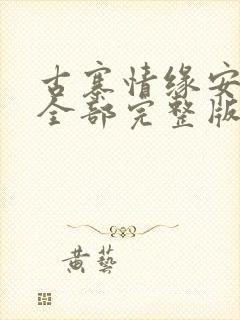 古寨情缘安
全部完整版
黄藝